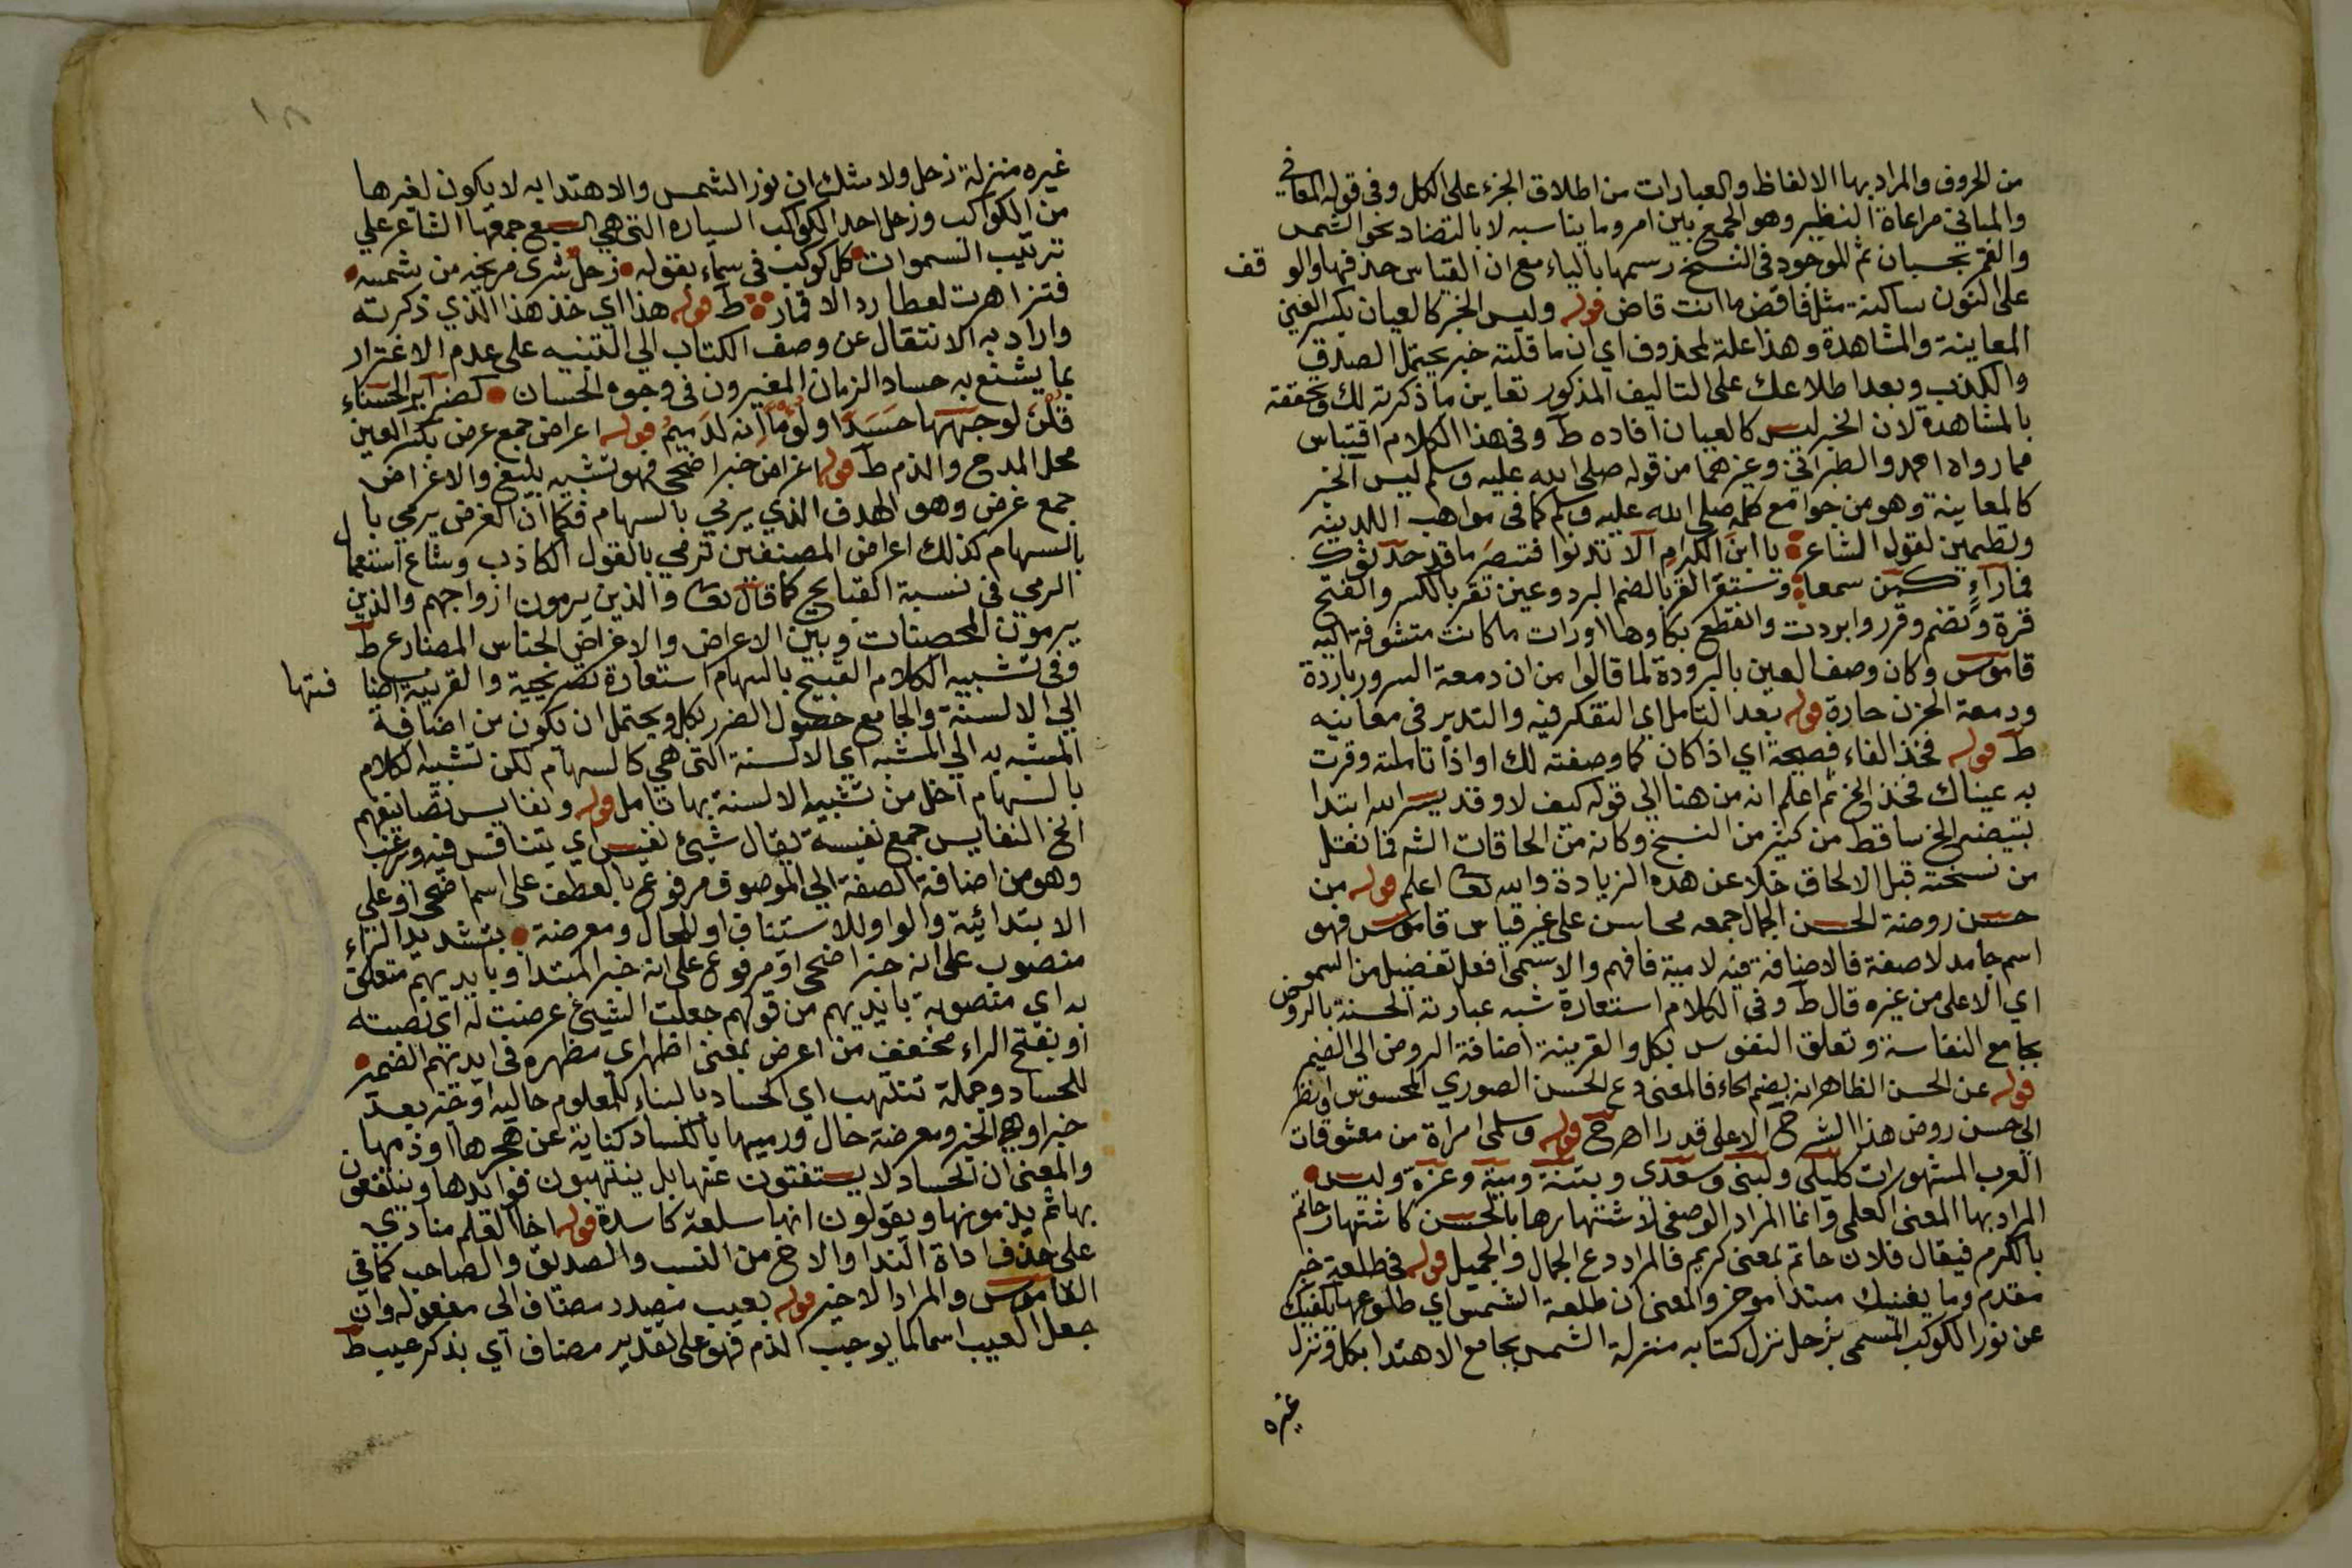 من الحروف والمراد بها الالفاظ والعبارات من اطلاق الجزء على الكل وفى قوله المعاني
والمباني مراعاة النظير وهو الجمع بين امر وما يناسبه لا بالتضاد نحو الشمس
والقمر بحسبان ثم الموجود فى النسخ رسمها بالياء مع ان القياس حذفها والوقف
على النون ساكنة مثل فاقض ما انت قاض قوله وليس الخبر كالعيان بكسر العين
المعاينة والمشاهدة وهذا علة لمحذوف اي ان ما قلته خبر يحتمل الصدق
والكذب وبعد اطلاعك على التاليف المذكور تعاين ما ذكرته لك وتحققه
بالمشاهدة لان الخبر ليس كالعيان افاده ط وفى هذا الكلام اقتباس
مما رواه احمد والطبراني وغيرهما من قوله صلى الله عليه وسلم ليس الخبر
كالمعاينة وهو من جوامع كلمه صلى الله عليه وسلم كما فى مواهب اللدنيه
وتضمين لقول الشاعر يا ابن الكرام الا تدنوا فتبصر ما قد حدثوك
فما راء كمن سمعا وستقر القر بالضم البرد وعينه تقر بالكسر والفتح
قرة وتضم وقرروا بردت وانقطع بكاوها او رات ما كانت متشوفة اليه
قاموس وكان وصف العين بالبرودة لما قالوا من ان دمعة السرور باردة
ودمعة الحزن حارة قوله بعد التامل اي التفكر فيه والتدبر فى معانيه
ط قوله فخذ الفاء فصيحة اي اذا كان كما وصفته لك او اذا تاملته وقرت
به عيناك فخذ الخ ثم اعلم انه من هنا الي قوله كيف لا وقد يسر الله ابتدا
تبييضه الخ ساقط من كثير من النسخ وكانه من الحاقات الش فما نقل
من نسخته قبل الالحاق خلا عن هذه الزيادة والله تعا اعلم قوله من
حسن روضة الحسن الجمال جمعه محاسن على غير قياس قاموس فهو
اسم جامد لا صفة فالاضافة فيه لامية فافهم والاسمى افعل تفضيل من السمو
اي الاعلى من غيره قال ط وفى الكلام استعارة شبه عبارته الحسنة بالروض
بجامع النفاسة وتعلق النفوس بكل والقرينة اضافة الروض الى الضمير
قوله عن الحسن الظاهر انه بضم الحاء فالمعنى دع الحسن الصوري المحسوس وانظر
الى حسن روض هذا الشرح الاعلى قدرا اهـ ح قوله وسلمى امراة من معشوقات
العرب المشهورات كليلى ولبنى وسعدى وبثنة ومية وعزة وليس
المراد بها المعنى العلمي وانما المراد الوصفي لاشتهارها بالحسن كاشتهار حاتم
بالكرم فيقال فلان حاتم بمعنى كريم فالمراد دع الجمال والجميل قوله فى طلعة خبر
مقدم وما يغنيك مبتدا موخر والمعنى ان طلعة الشمس اي طلوعها يكفيك
عن نور الكوكب المسمى بزحل نزل كتابه منزلة الشمس بجامع الاهتدا بكل ونزل
غيره
١٨
غيره منزلة زحل ولا شك ان نور الشمس والاهتدا به لا يكون لغيرها
من الكواكب وزحل احد الكواكب السياره التى هي السبع جمعها الشاعر علي
ترتيب السموات كل كوكب فى سماء بقوله زحل شرى مريخه من شمسه
فتزاهرت لعطارد الاقمار ط قوله هذا اي خذ هذا الذي ذكرته
واراد به الانتقال عن وصف الكتاب الي التنبيه على عدم الاغترار
بما يشنع به حساد الزمان المغيرون فى وجوه الحسان كضرائر الحسناء
قلن لوجهها حسدا ولؤما انه لدميم قوله اعراض جمع عرض بكسر العين
محل المدح والذم ط قوله اغراض خبر اضحى فهو تشبيه بليغ والاغراض
جمع غرض وهو الهدف الذي يرمي بالسهام فكما ان الغرض يرمي با
بالسهام كذلك اعراض المصنفين ترمي بالقول الكاذب وشاع استعمال
الرمي فى نسبة القبايح كما قال تعا والذين يرمون ازواجهم والذين
يرمون المحصنات وبين الاعراض والاغراض الجناس المضارع ط
وفى تشبيه الكلام القبيح بالسهام استعارة تصريحية والقرينة اضافتها
الي الالسنة والجامع حصول الضرر بكل ويحتمل ان يكون من اضافة
المشبه به الي المشبه اي الالسنة التى هي كالسهام لكن تشبيه الكلام
بالسهام ادخل من تشبيه الالسنة بها تامل قوله ونفايس تصانيفهم
الخ النفايس جمع نفيسة يقال شيئ نفيس اي يتنافس فيه ويرغب
وهو من اضافة الصفة الي الموصوف مرفوع بالعطف على اسم اضحى او علي
الابتدائية والواو للاستئناف او للحال ومعرضة بتشديد الراء
منصوب على انه خبر اضحى او مرفوع على انه خبر المبتدا وبايديهم متعلق
به اي منصوبة بايديهم من قولهم جعلت الشيئ عرضت له اي نصبته
او بفتح الراء مخففة من اعرض بمعنى اظهر اي مظهرة فى ايديهم الضمير
للحساد وجملة تنتهب اي الحساد بالبناء للمعلوم حاليه او خبر بعد
خبر او هي الخبر ومعرضة حال ورميها بالكساد كناية عن هجرها او ذمها
والمعنى ان الحساد لا يستفتون عنها بل ينتهبون فوائدها وينتفعون
بها ثم يذمونها ويقولون انها سلعة كاسدة قوله اخا العلم منادي
على حذف اداة الندا والاخ من النسب والصديق والصاحب كما في
القاموس والمراد الاخير قوله بعيب مصدر مضاف الى مفعوله وان
جعل العيب اسما لما يوجب الذم فهو على تقدير مضاف اي بذكر عيب ط